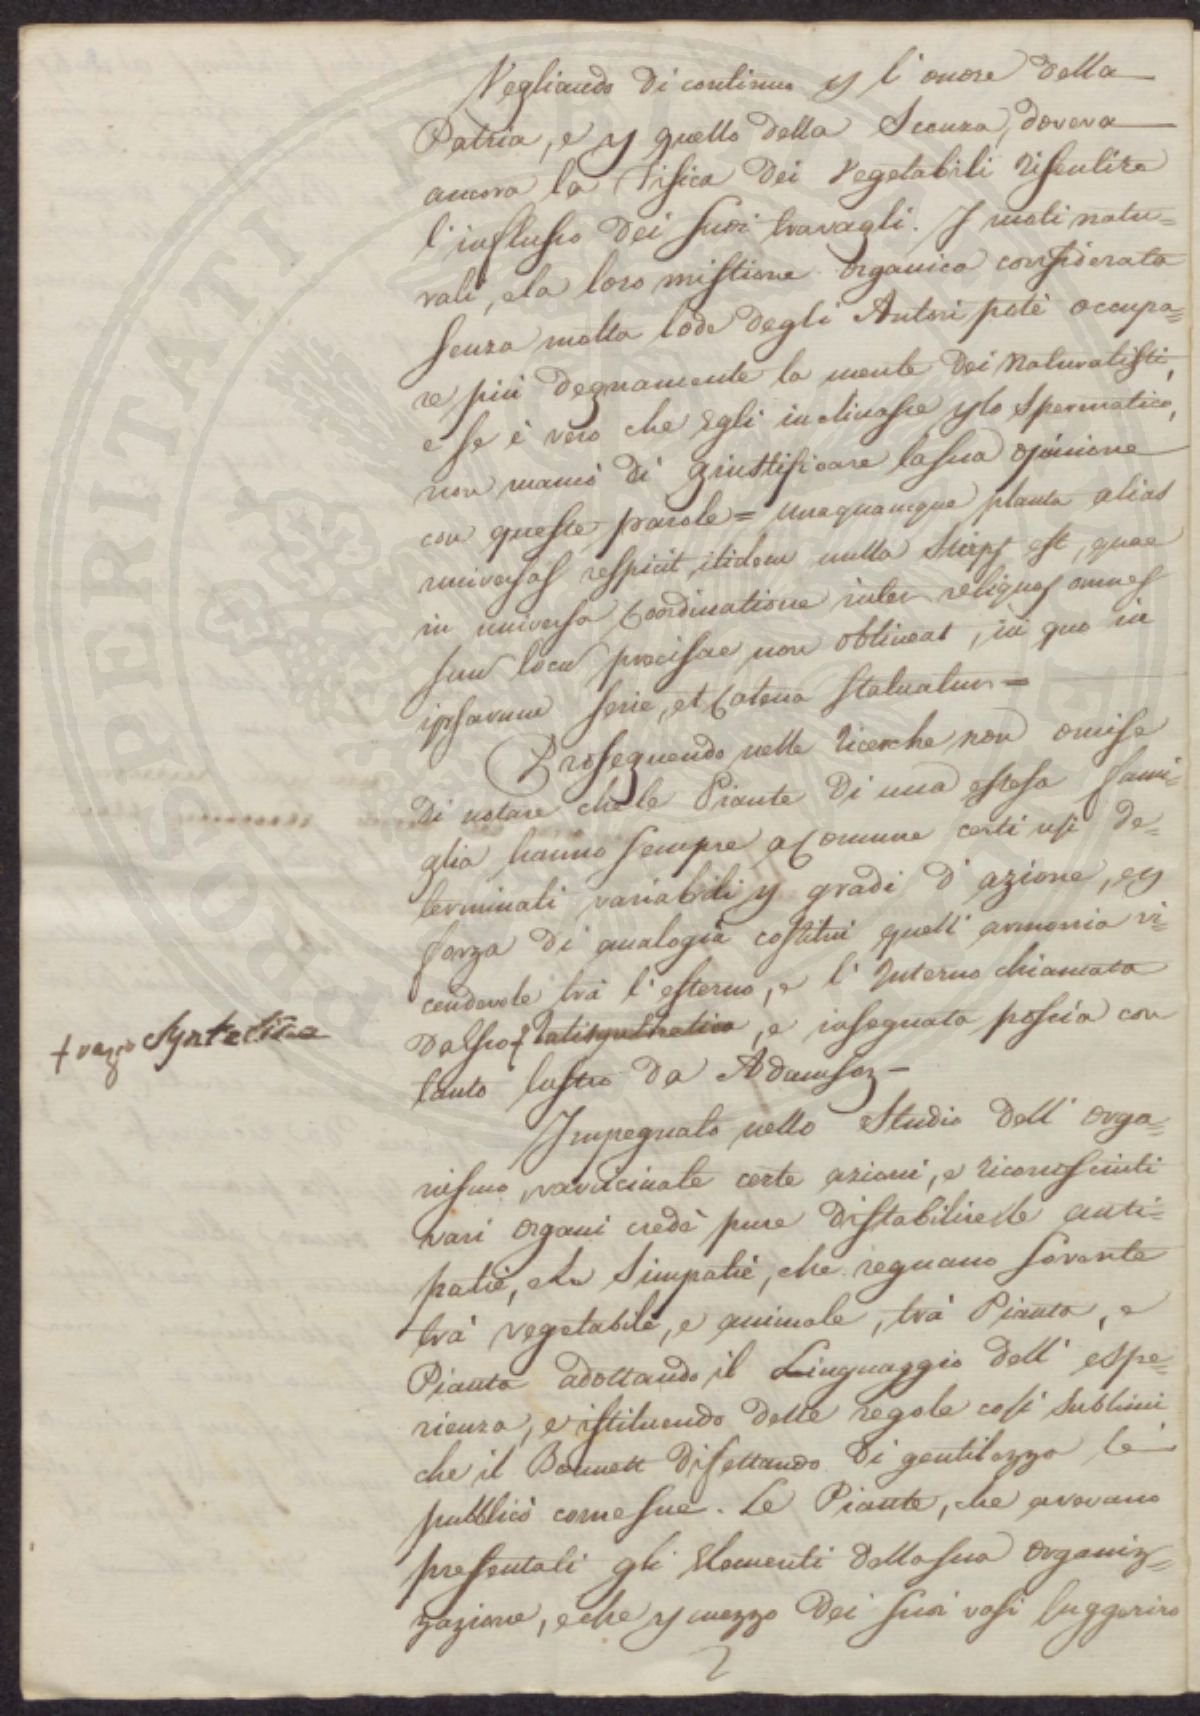 Vegliando di continuo p l'onore della
Patria, e p quello della Scenza, doveva
ancora la Fisica dei Vegetabili risentire
l'influsso dei suoi travagli. I moti natu=
rali, e la loro mistione organica considerata
senza molta lode degli Autori potè occupa=
re più degnamente la mente dei Naturalisti,
e se è vero che Egli inclinasse p lo spermatico,
non mancò di giustificare la sua opinione
con queste parole = unaquamque planta alias
universas respicit itidem nulla Stirps est, quae
in universa Coordinatione inter reliquas omnes
suu locu praecisae non obtineat, in quo in
ipsarum serie, et Catena statuatur =
Proseguendo nelle ricerche non omise
di notare che le Piante di una estesa fami=
glia hanno sempre a Comune certi usi de=
terminati variabili p gradi d'azione, e p
forza di analogia costituì quell'armonia vi=
cendevole trà l'esterno, e l'Interno chiamata
dalso , e insegnata poscia con
+ Syntetica
tanto lustro da Adamson —
Impegnato nello Studio dell'orga=
nismo, vaticinate certe azioni, e riconosciuti
vari organi credè pure di stabilire le anti=
patie, e le Simpatie, che regnano sovente
trà vegetabile, e animale, trà Pianta, e
Pianta adottando il Linguaggio dell'espe=
rienza, e istituendo delle regole così sublimi
che il Bonnett difettando di gentilezza le
pubblicò come sue. Le Piante, che avevano
presentati gli Elementi della sua organiz=
zazione, e che p mezzo dei suoi vasi suggeriro
2
PROSPERITATI